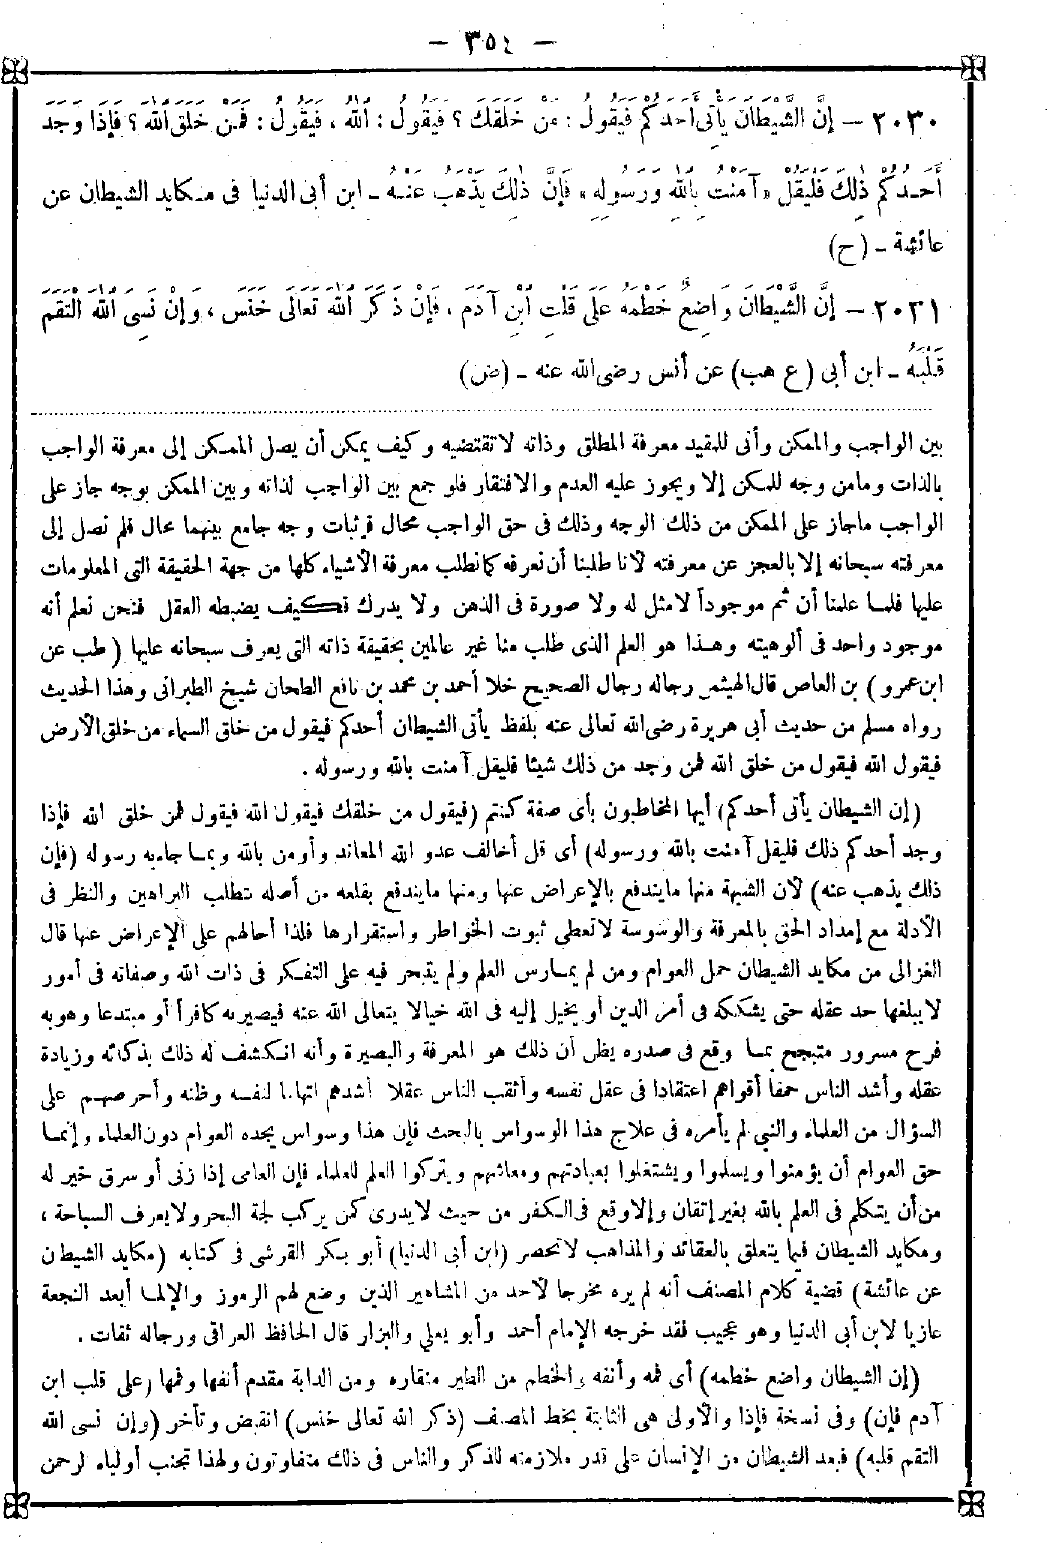 — ٣٥٤ —
٢٠٣٠ — إِنَّ الشَّيْطَانَ يَأْتِى أَحَدَكُمْ فَيَقُولُ : مَنْ خَلَقَكَ ؟ فَيَقُولُ : اَللّٰهُ ، فَيَقُولُ : فَمَنْ خَلَقَ اللّٰهَ ؟ فَإِذَا وَجَدَ
أَحَدُكُمْ ذٰلِكَ فَلْيَقُلْ « آمَنْتُ بِاللّٰهِ وَرَسُولِهِ » فَإِنَّ ذٰلِكَ يَذْهَبُ عَنْهُ ــ ابن أبى الدنيا فى مكايد الشيطان عن
عائشة ــ (ح)
٢٠٣١ — إِنَّ الشَّيْطَانَ وَاضِعٌ خَطْمَهُ عَلَى قَلْبِ ابْنِ آدَمَ ، فَإِنْ ذَكَرَ اللّٰهَ تَعَالَى خَنَسَ ، وَإِنْ نَسِىَ اللّٰهَ الْتَقَمَ
قَلْبَهُ ــ ابن أبى (ع هب) عن أنس رضى الله عنه ــ (ض)
بين الواجب والممكن وأنى للمقيد معرفة المطلق وذاته لا تقتضيه وكيف يمكن أن يصل الممكن إلى معرفة الواجب
بالذات وما من وجه للممكن إلا ويجوز عليه العدم والافتقار فلو جمع بين الواجب لذاته وبين الممكن بوجه جاز على
الواجب ما جاز على الممكن من ذلك الوجه وذلك فى حق الواجب محال فإثبات وجه جامع بينهما محال فلم نصل إلى
معرفته سبحانه إلا بالعجز عن معرفته لأنا طلبنا أن نعرفه كما نطلب معرفة الأشياء كلها من جهة الحقيقة التى المعلومات
عليها فلما علمنا أن ثم موجوداً لا مثل له ولا صورة فى الذهن ولا يدرك فكيف يضبطه العقل فنحن نعلم أنه
موجود واحد فى ألوهيته وهذا هو العلم الذى طلب منا غير عالمين بحقيقة ذاته التى يعرف سبحانه عليها ( طب عن
ابن عمرو ) بن العاص قال الهيثمى رجاله رجال الصحيح خلا أحمد بن محمد بن نافع الطحان شيخ الطبرانى وهذا الحديث
رواه مسلم من حديث أبى هريرة رضى الله تعالى عنه بلفظ يأتى الشيطان أحدكم فيقول من خلق السماء من خلق الأرض
فيقول الله فيقول من خلق الله فمن وجد من ذلك شيئا فليقل آمنت بالله ورسوله .
(إن الشيطان يأتى أحدكم) أيها المخاطبون بأى صفة كنتم (فيقول من خلقك فيقول الله فيقول فمن خلق الله فإذا
وجد أحدكم ذلك فليقل آمنت بالله ورسوله) أى قل أخالف عدو الله المعاند وأومن بالله وبما جاء به رسوله (فإن
ذلك يذهب عنه) لأن الشبهة منها ما يندفع بالإعراض عنها ومنها ما يندفع بقلعه من أصله بتطلب البراهين والنظر فى
الأدلة مع إمداد الحق بالمعرفة والوسوسة لا تعطى ثبوت الخواطر واستقرارها فلذا أحالهم على الإعراض عنها قال
الغزالى من مكايد الشيطان حمل العوام ومن لم يمارس العلم ولم يتبحر فيه على التفكر فى ذات الله وصفاته فى أمور
لا يبلغها حد عقله حتى يشككه فى أمر الدين أو يخيل إليه فى الله خيالا يتعالى الله عنه فيصير به كافراً أو مبتدعا وهو به
فرح مسرور متبجح بما وقع فى صدره يظن أن ذلك هو المعرفة والبصيرة وأنه انكشف له ذلك بذكائه وزيادة
عقله وأشد الناس حمقا أقواهم اعتقادا فى عقل نفسه وأثقب الناس عقلا أشدهم اتهاما لنفسه وظنه وأحرصهم على
السؤال من العلماء والنبى لم يأمره فى علاج هذا الوسواس بالبحث فإن هذا وسواس يجده العوام دون العلماء وإنما
حق العوام أن يؤمنوا ويسلموا ويشتغلوا بعبادتهم ومعائشهم ويتركوا العلم للعلماء فإن العامى إذا زنى أو سرق خير له
من أن يتكلم فى العلم بالله بغير إتقان وإلا وقع فى الكفر من حيث لا يدرى كمن يركب لجة البحر ولا يعرف السباحة ،
ومكايد الشيطان فيما يتعلق بالعقائد والمذاهب لا تحصر (ابن أبى الدنيا) أبو بكر القرشى فى كتابه (مكايد الشيطان
عن عائشة) قضية كلام المصنف أنه لم يره مخرجا لأحد من المشاهير الذين وضع لهم الرموز وإلا لما أبعد النجعة
عازيا لابن أبى الدنيا وهو عجيب فقد خرجه الإمام أحمد وأبو يعلى والبزار قال الحافظ العراقى ورجاله ثقات .
(إن الشيطان واضع خطمه) أى فمه وأنفه والخطم من الطير منقاره ومن الدابة مقدم أنفها وفمها (على قلب ابن
آدم فإن) وفى نسخة فإذا والأولى هى الثابتة بخط المصنف (ذكر الله تعالى خنس) انقبض وتأخر (وإن نسى الله
التقم قلبه) فبعد الشيطان من الإنسان على قدر ملازمته للذكر والناس فى ذلك متفاوتون ولهذا تجنب أولياء الرحمن